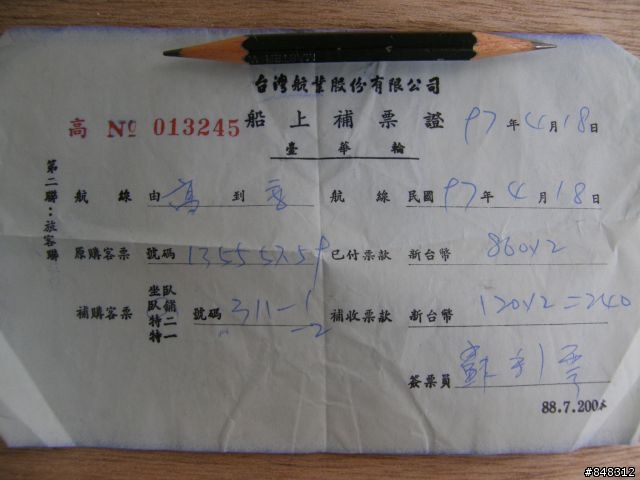 台灣航業股份有限公司
高 № 013245 船上補票證 97年4月18日
臺華輪
第二聯：旅客聯
航線 由 高 到 航線 民國 97年4月18日
原購客票 號碼 已付票款 新台幣 860x2
補購客票 坐臥臥鋪特二特一 號碼 311-1 -2 補收票款 新台幣 120x2=240
簽票員 蘇
88.7.200本
#848312